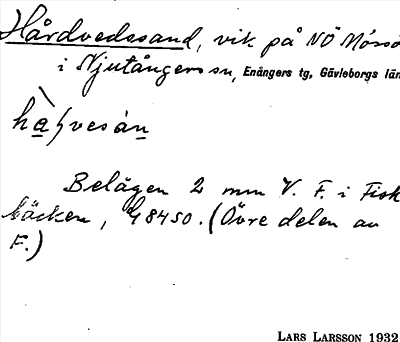 Hårdvedssand, vik på NÖ Mössö
i Njutångers sn, Enångers tg, Gävleborgs län
Belägen 2 mm V. F. i Fisk
bäcken, (Övre delen av
F.)
LARS LARSSON 1932